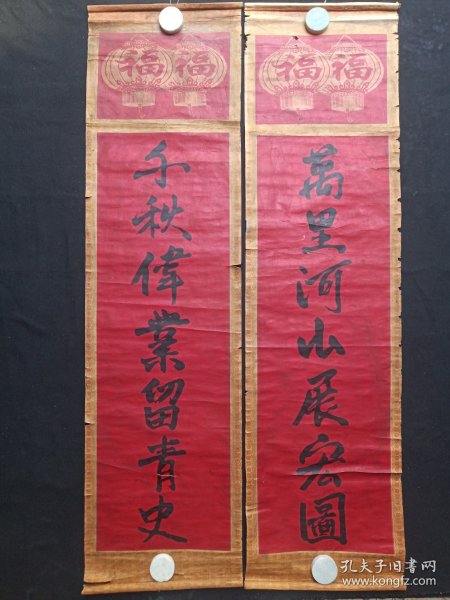 福福
萬里河山展宏圖
福福
千秋偉業留青史
孔夫子旧书网
www.kongfz.com